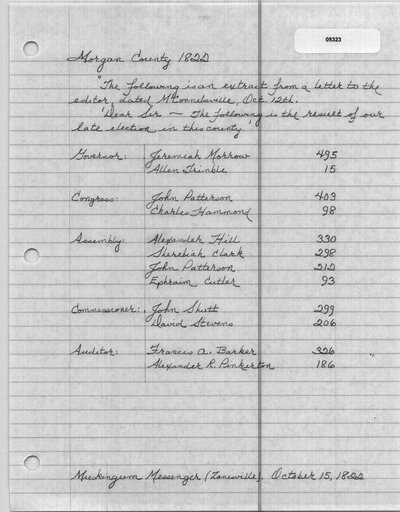 05323
Morgan County 1822
"The following is an extract from a letter to the
editor, dated M'Connelsville, Oct. 12th.
'Dear Sir — The following is the result of our
late election in this county.'
Governor: Jeremiah Morrow 495
Allen Trimble 15
Congress: John Patterson 403
Charles Hammond 98
Assembly: Alexander Hill 330
Sherebiah Clark 298
John Patterson 212
Ephraim Cutler 93
Commissioner: John Shutt 299
David Stevens 206
Auditor: Francis A. Barker 326 "
Alexander R. Pinkerton 186
Muskingum Messenger (Zanesville). October 15, 1822